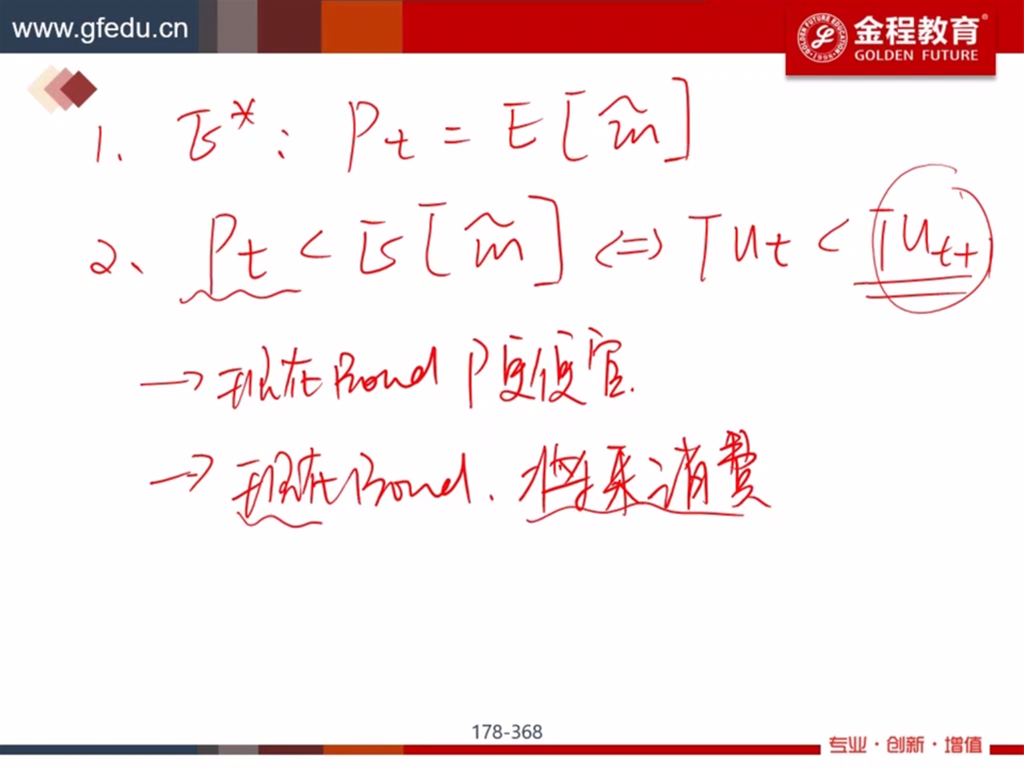 www.gfedu.cn
金程教育®
GOLDEN FUTURE
1. E*: Pt = E[m̃]
2、 Pt < E[m̃] <=> TUt < TUt+1
→现在Bond P更便宜.
→现在Bond. 将来消费
178-368
专业·创新·增值